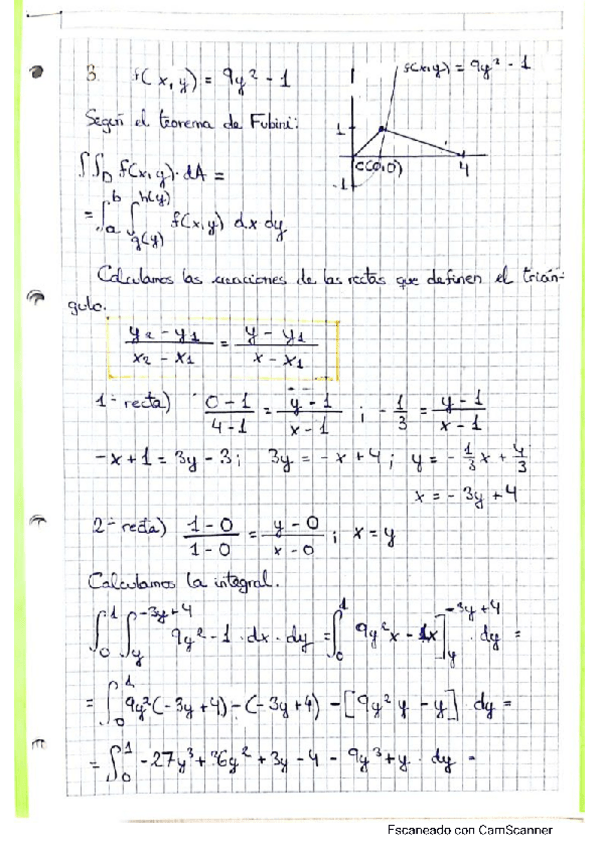 3. f(x,y) = 9y² - 1
f(x,y) = 9y² - 1
Según el teorema de Fubini:
1
-1
C(0,0)
4
∫∫_D f(x,y)·dA =
= ∫_a^b ∫_{g(y)}^{h(y)} f(x,y) dx dy
Calculamos las ecuaciones de las rectas que definen el trián-
gulo.
(y₂ - y₁)/(x₂ - x₁) = (y - y₁)/(x - x₁)
1ª recta) (0 - 1)/(4 - 1) = (y - 1)/(x - 1) ; -1/3 = (y - 1)/(x - 1)
-x + 1 = 3y - 3; 3y = -x + 4; y = -1/3 x + 4/3
x = -3y + 4
2ª recta) (1 - 0)/(1 - 0) = (y - 0)/(x - 0) ; x = y
Calculamos la integral.
∫_0^1 ∫_y^{-3y+4} 9y² - 1 · dx · dy = ∫_0^1 9y²x - 1x]_y^{-3y+4} · dy =
= ∫_0^1 9y²(-3y+4) - (-3y+4) - [9y²y - y] dy =
= ∫_0^1 -27y³ + 36y² + 3y - 4 - 9y³ + y · dy =
Escaneado con CamScanner